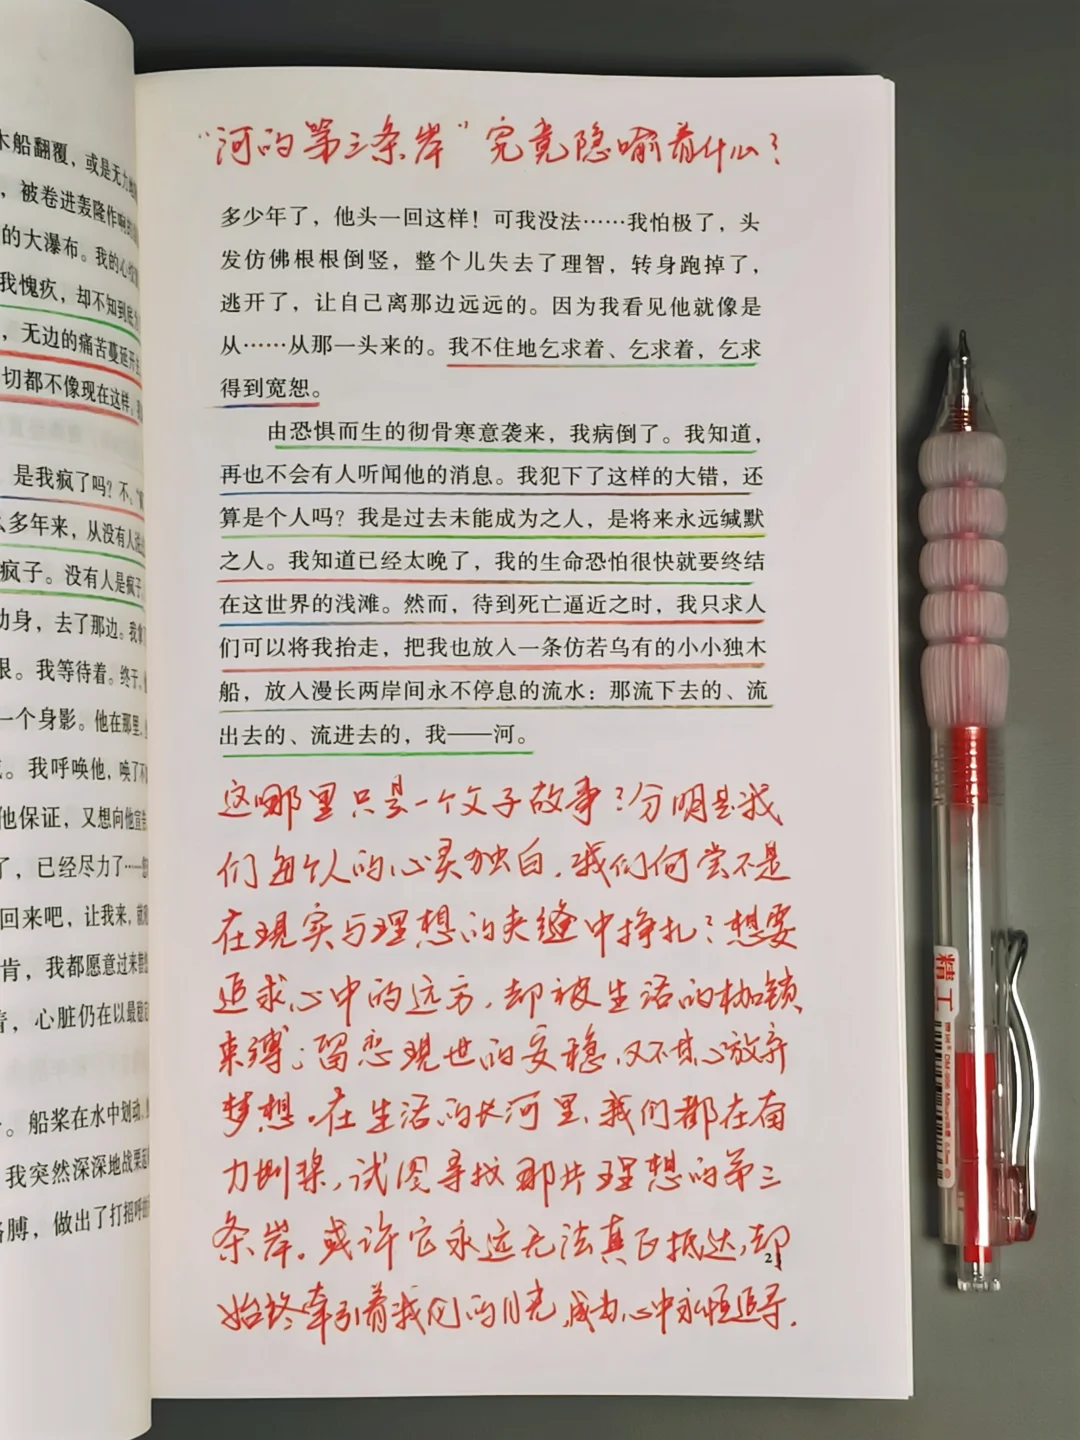 木船翻覆，或是无力
，被卷进轰隆作响
的大瀑布。我的心
我愧疚，却不知到底
，无边的痛苦蔓延开
切都不像现在这样，
是我疯了吗？不。
么多年来，从没有人
疯子。没有人是疯子
动身，去了那边。我
艮。我等待着。终于，
一个身影。他在那里，
。我呼唤他，唤了
他保证，又想向他宣告
了，已经尽力了……
回来吧，让我来，
肯，我都愿意过来
着，心脏仍在以最
。船桨在水中划动，
我突然深深地战栗
胳膊，做出了打招呼
“河的第三条岸”究竟隐喻着什么？
多少年了，他头一回这样！可我没法……我怕极了，头
发仿佛根根倒竖，整个儿失去了理智，转身跑掉了，
逃开了，让自己离那边远远的。因为我看见他就像是
从……从那一头来的。我不住地乞求着、乞求着，乞求
得到宽恕。
由恐惧而生的彻骨寒意袭来，我病倒了。我知道，
再也不会有人听闻他的消息。我犯下了这样的大错，还
算是个人吗？我是过去未能成为之人，是将来永远缄默
之人。我知道已经太晚了，我的生命恐怕很快就要终结
在这世界的浅滩。然而，待到死亡逼近之时，我只求人
们可以将我抬走，把我也放入一条仿若乌有的小小独木
船，放入漫长两岸间永不停息的流水：那流下去的、流
出去的、流进去的，我——河。
这哪里只是一个父子故事？分明是我
们每个人的心灵独白，我们何尝不是
在现实与理想的夹缝中挣扎？想要
追求心中的远方，却被生活的枷锁
束缚；留恋现世的安稳，又不甘心放弃
梦想。在生活的长河里，我们都在奋
力划桨，试图寻找那片理想的第三
条岸。或许它永远无法真正抵达，却
始终牵引着我们的目光，成为心中永恒追寻.
精工